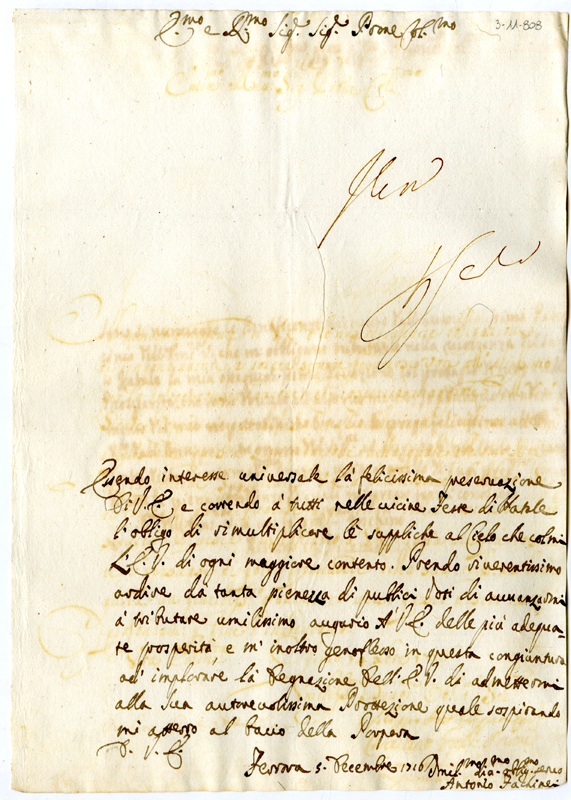 E.mo e R.mo Sig.r Sig.r Prone Col.mo
3-11-808
Essendo interesse universale la felicissima preservazione
di V. E. e correndo à tutti nelle vicine Feste di Natale
l'obligo di rimultiplicare le suppliche al Cielo che colmi
L'E. V. di ogni maggiore contento. Prendo riverentissimo
ardire da tanta pienezza di publici Voti di avvanzarmi
à tributare umilissimo augurio A' V. E. delle più adequa-
te prosperità, e m'inoltro genoflesso in questa congiuntura
ad' implorare la Degnazione dell'E. V. di ammettermi
alla Sua autorevolissima Protezione quale sospirando
mi atterro al bacio della Porpora
D. V. E.
Ferrara 5. Decembre 1716 Umil.mo oblig.mo servo
Antonio Fachinei